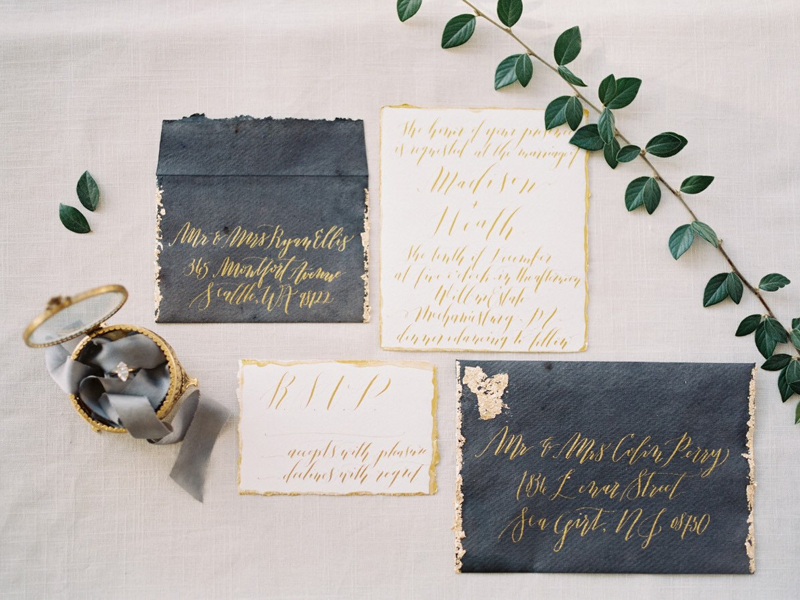 Mr & Mrs Ryan Ellis
345 Montfort Avenue
Seattle, WA 98122
the honor of your presence
is requested at the marriage of
Madison
&
Heath
the tenth of December
at five o'clock in the afternoon
Estate
Mechanicsburg, PA
dinner & dancing to follow
R.S.V.P
accepts with pleasure
declines with regret
Mr & Mrs Colin Perry
1836 Street
Sea Girt, NJ 08750